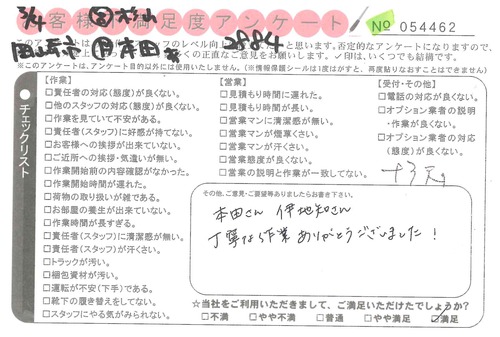 お客様満足度アンケート
№ 054462
3/4
2884
このアンケートは、
※このアンケートは、アンケート目的以外には使用いたしません。(※情報保護シールは1度はがすと、再度貼りなおすことはできません)
チェックリスト
【作業】
□責任者の対応(態度)が良くない。
□他のスタッフの対応(態度)が良くない。
□作業を見ていて不安がある。
□責任者(スタッフ)に好感が持てない。
□お客様への挨拶が出来ていない。
□ご近所への挨拶・気遣いが無い。
□作業開始前の内容確認がなかった。
□作業開始時間が遅れた。
□荷物の取り扱いが雑である。
□お部屋の養生が出来ていない。
□作業時間が長すぎる。
□責任者(スタッフ)に清潔感が無い。
□責任者(スタッフ)が汗くさい。
□トラックが汚い。
□梱包資材が汚い。
□運転が安全(下手)である。
□靴下の履き替えをしてない。
□スタッフにやる気がみられない。
【営業】
□見積もり時間に遅れた。
□見積もり時間が長い。
□営業マンに清潔感が無い。
□営業マンが煙草くさい。
□営業マンが汗くさい。
□営業態度が良くない。
□営業の説明と作業が一致してない。
【受付・その他】
□電話の対応が良くない。
□オプション業者の説明
・作業が良くない。
□オプション業者の対応
(態度)が良くない。
その他、ご意見・ご要望等ありましたらお書き下さい。
本田さん 伊地知さん
丁寧な作業ありがとうございました!
☆当社をご利用いただきまして、ご満足いただけたでしょうか?
□不満 □やや不満 □普通 □やや満足 □満足